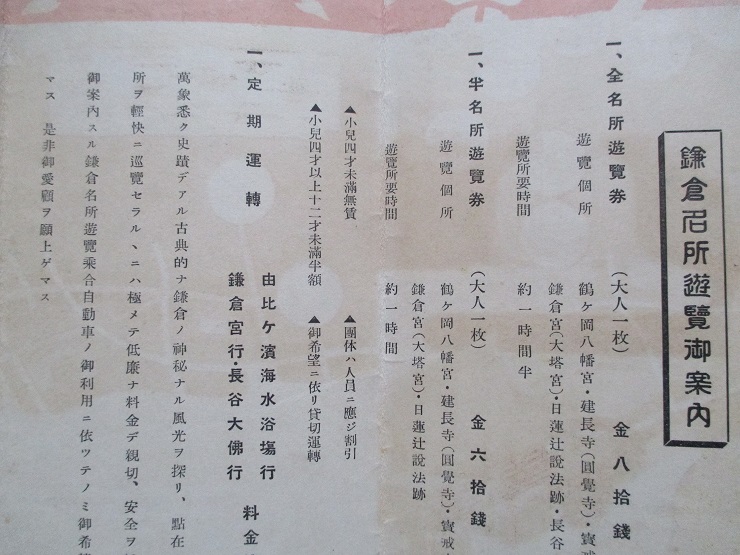 鎌倉名所遊覽御案內
一、全名所遊覽券 (大人一枚) 金八拾錢
遊覽個所 鶴ケ岡八幡宮・建長寺(圓覺寺)・寳戒
鎌倉宮(大塔宮)・日蓮辻說法跡・長谷
遊覽所要時間 約一時間半
一、半名所遊覽券 (大人一枚) 金六拾錢
遊覽個所 鶴ケ岡八幡宮・建長寺(圓覺寺)・寳戒
鎌倉宮(大塔宮)・日蓮辻說法跡
遊覽所要時間 約一時間
▲小兒四才未滿無賃 ▲團体ハ人員ニ應ジ割引
▲小兒四才以上十二才未滿半額 ▲御希望ニ依リ貸切運轉
一、定期運轉 由比ケ濱海水浴塲行 料金
鎌倉宮行・長谷大佛行
萬象悉ク史蹟デアル古典的ナ鎌倉ノ神秘ナル風光ヲ探リ、點在
所ヲ輕快ニ巡覽セラルヽニハ極メテ低廉ナ料金デ親切、安全ヲ
御案內スル鎌倉名所遊覽乘合自動車ノ御利用ニ依ツテノミ御希
マス 是非御愛顧ヲ願上ゲマス